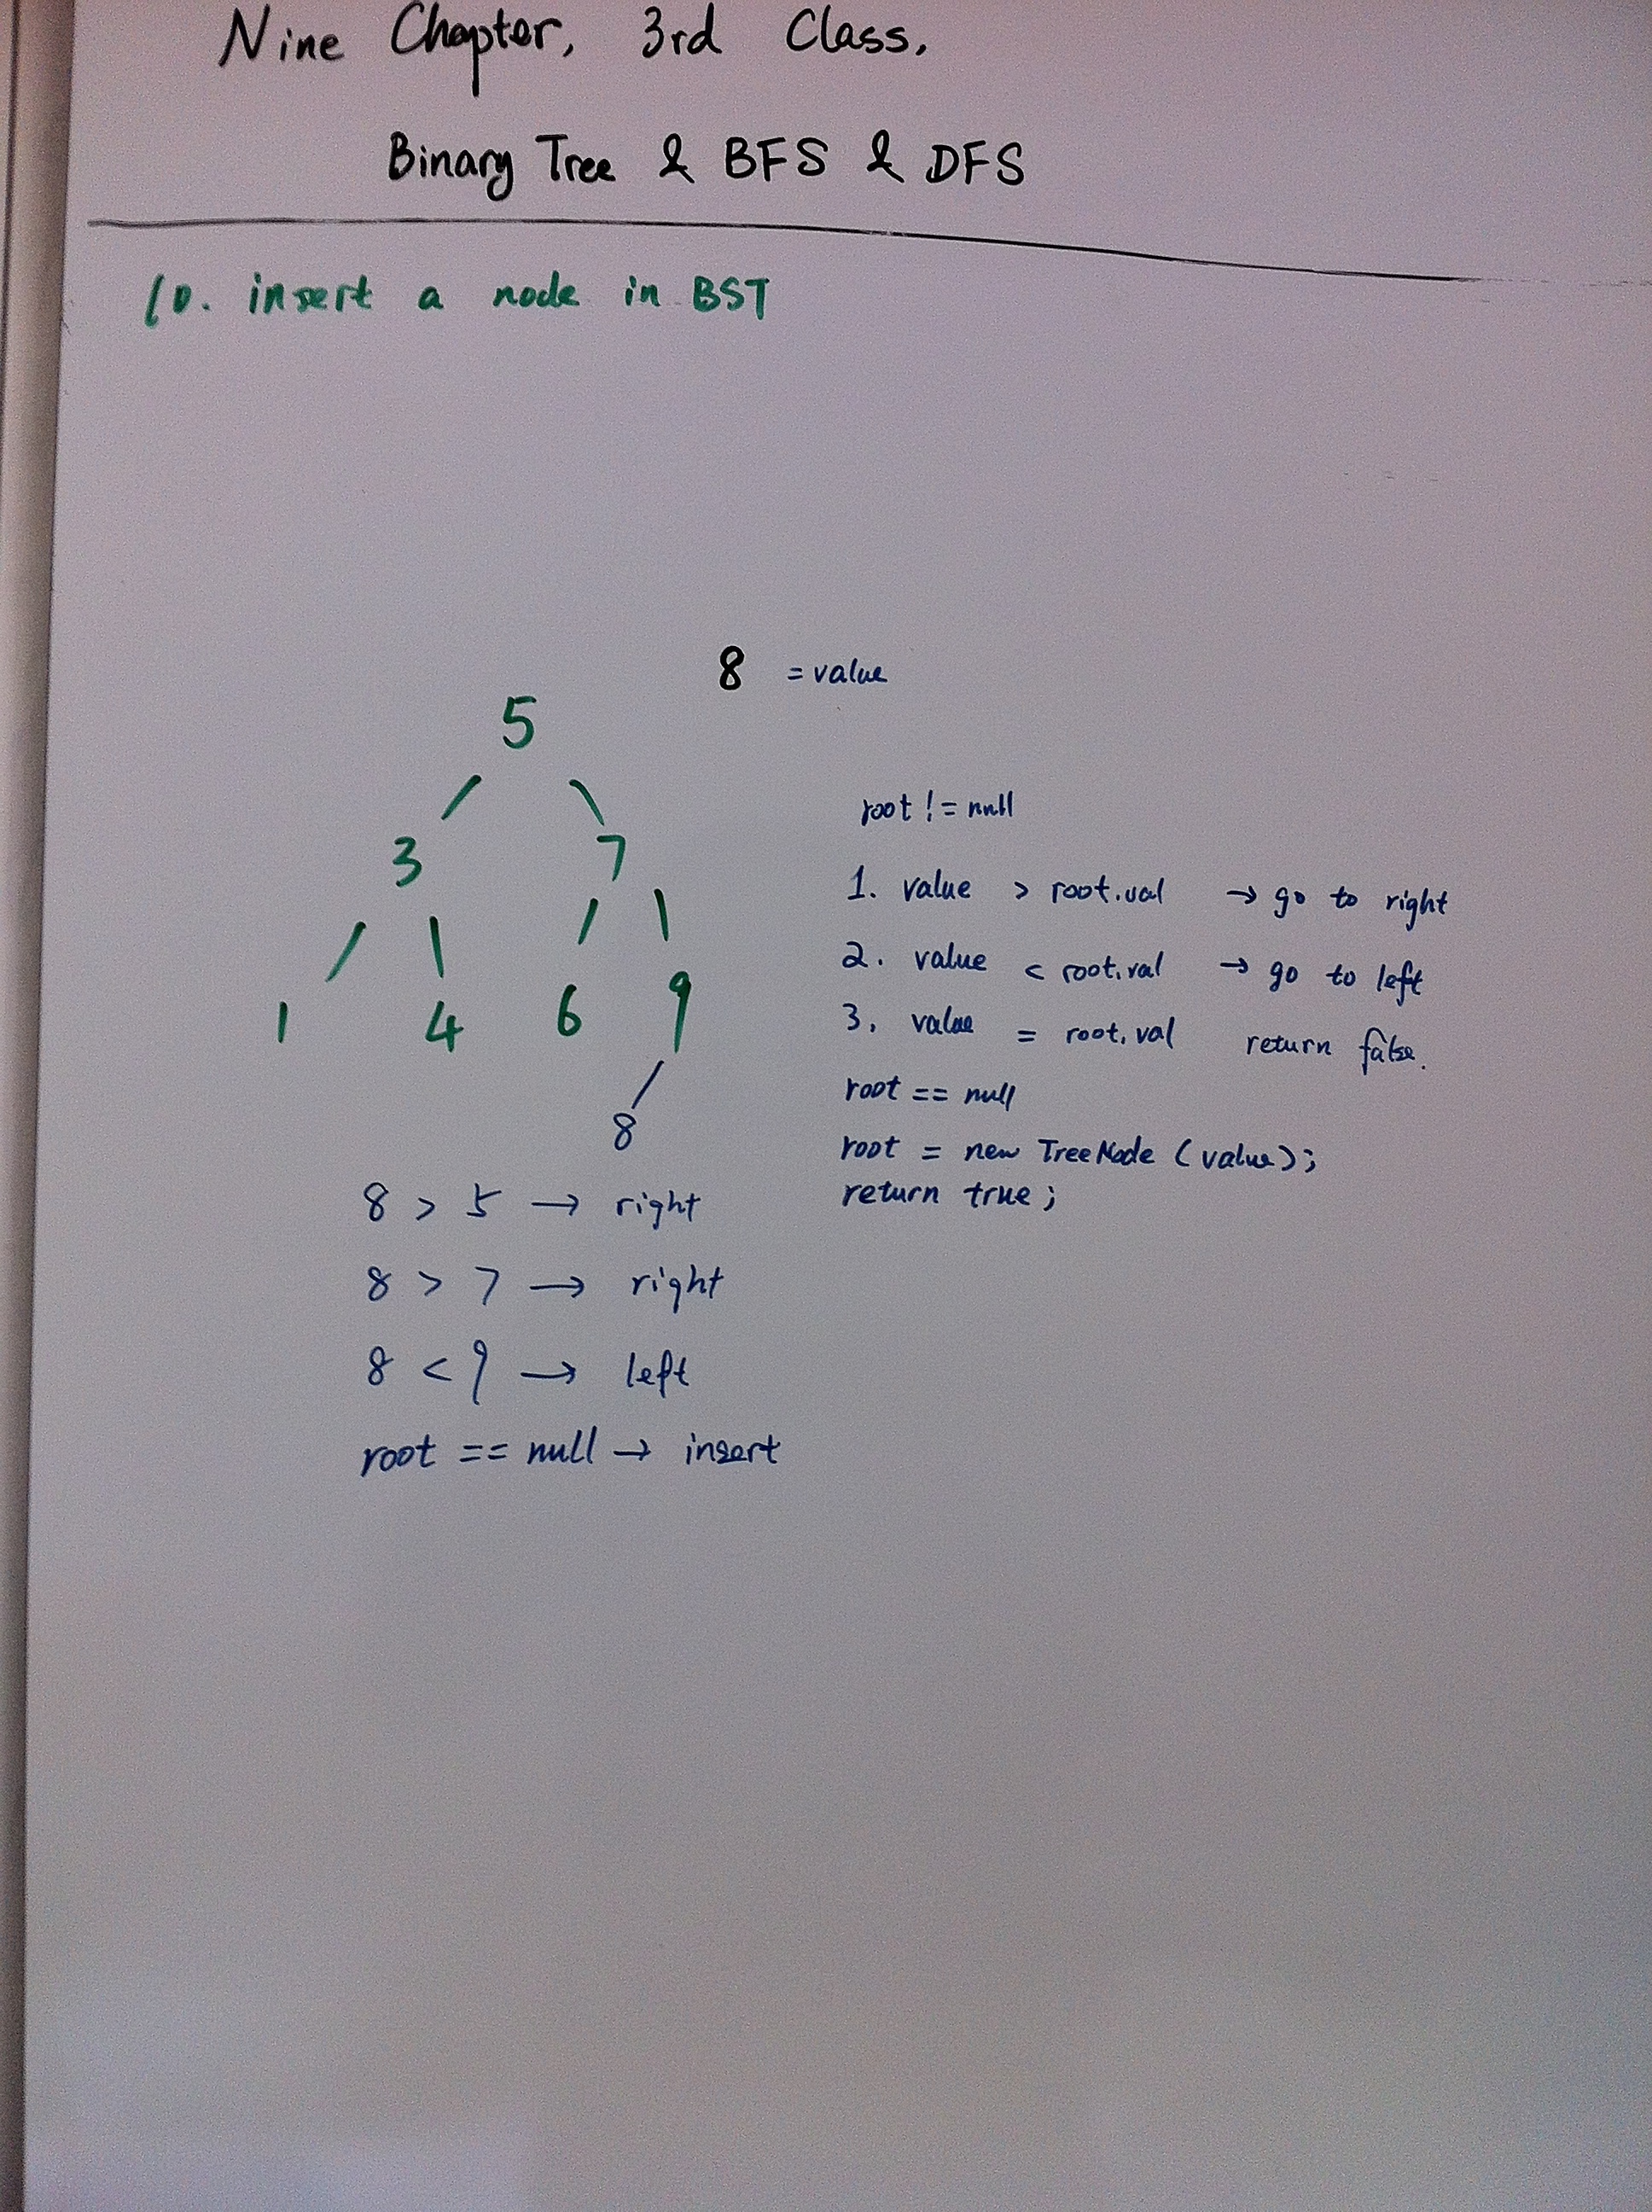 Nine Chapter, 3rd Class,
Binary Tree & BFS & DFS
10. insert a node in BST
8 = value
5
3 7
1 4 6 9
8
8 > 5 → right
8 > 7 → right
8 < 9 → left
root == null → insert
root != null
1. value > root.val → go to right
2. value < root.val → go to left
3. value = root.val return false.
root == null
root = new TreeNode (value);
return true;